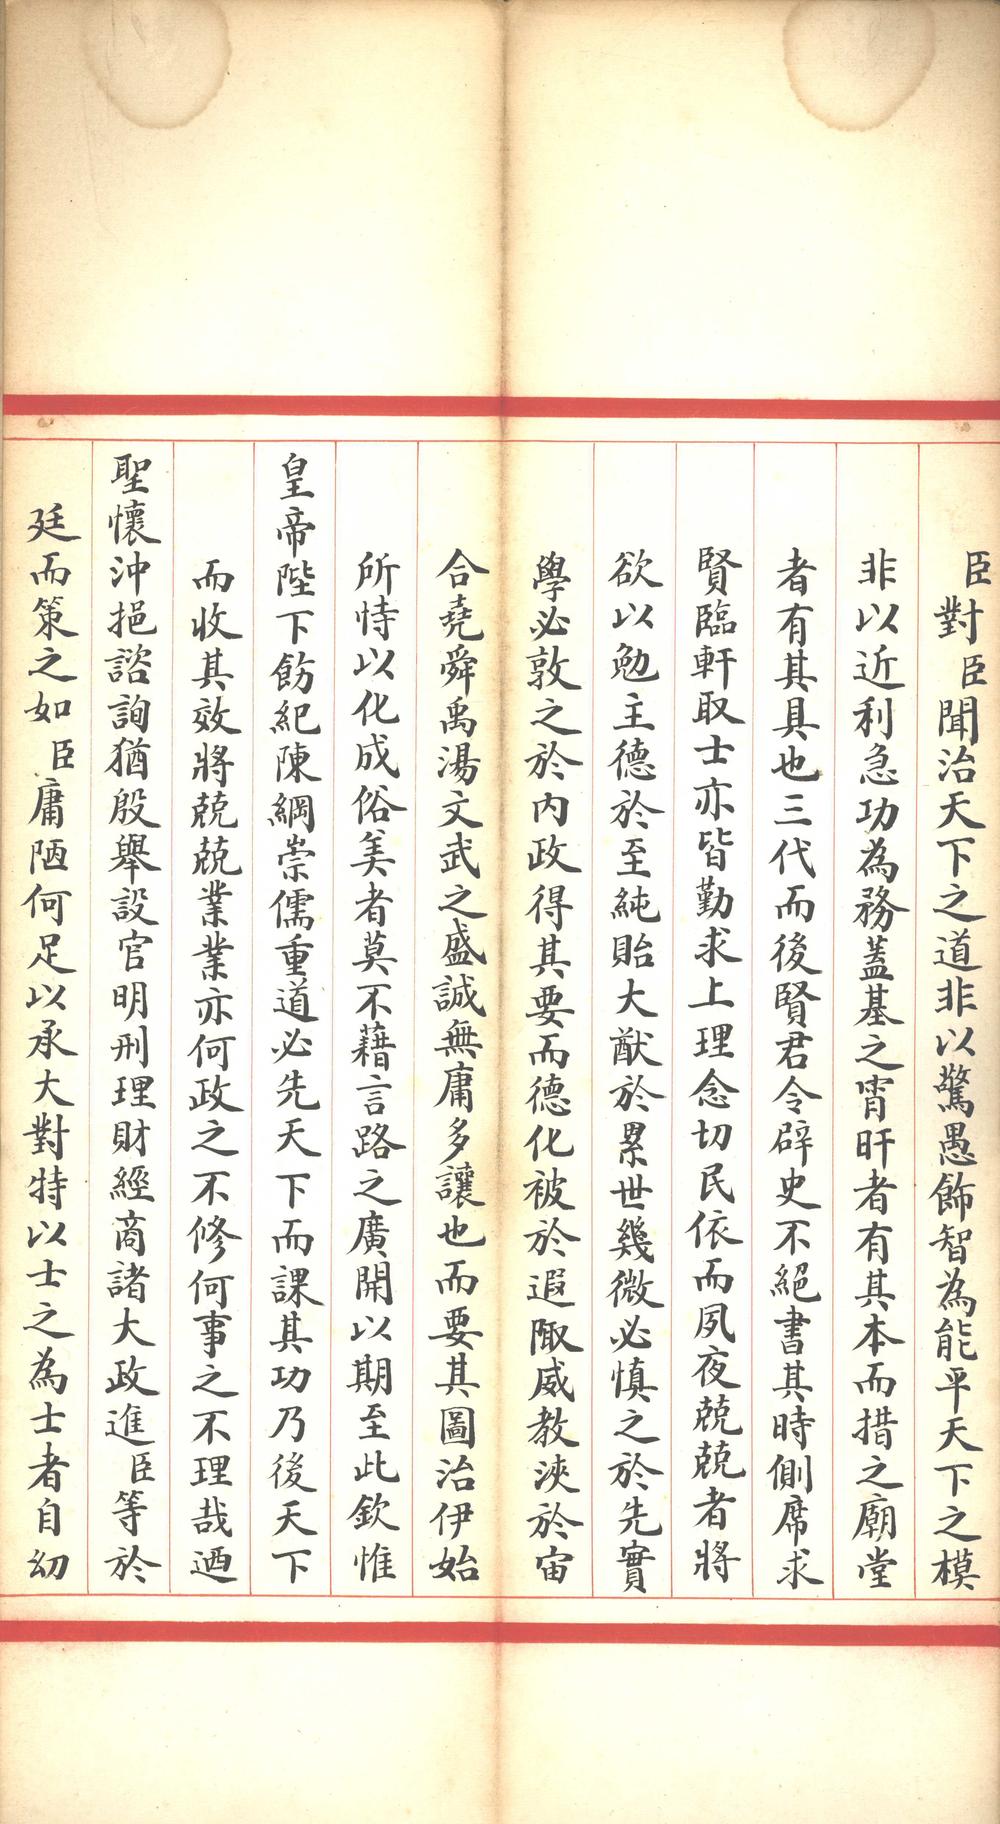 臣對臣聞治天下之道非以驚愚飾智為能平天下之模
非以近利急功為務蓋基之宵旰者有其本而措之廟堂
者有其具也三代而後賢君令辟史不絕書其時側席求
賢臨軒取士亦皆勤求上理念切民依而夙夜兢兢者將
欲以勉主德於至純貽大猷於累世幾微必慎之於先實
學必敦之於內政得其要而德化被於遐陬威教浹於宙
合堯舜禹湯文武之盛誠無庸多讓也而要其圖治伊始
所恃以化成俗美者莫不藉言路之廣開以期至此欽惟
皇帝陛下飭紀陳綱崇儒重道必先天下而課其功乃後天下
而收其效將兢兢業業亦何政之不修何事之不理哉迺
聖懷沖挹諮詢猶殷舉設官明刑理財經商諸大政進臣等於
廷而策之如臣庸陋何足以承大對特以士之為士者自幼